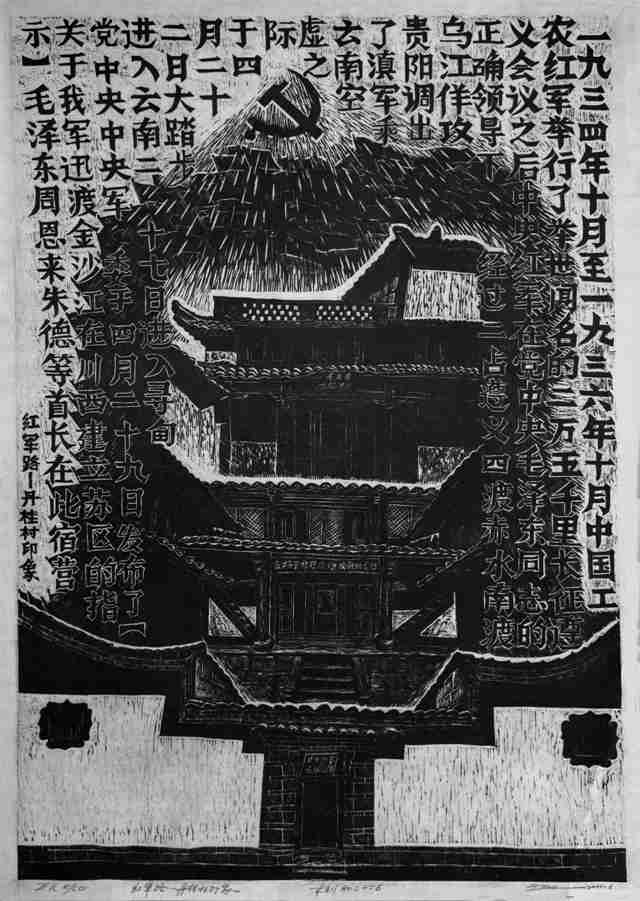 一九三四年十月至一九三六年十月中国工
农红军举行了举世闻名的二万五千里长征遵
义会议之后中央红军在党中央毛泽东同志的
正确领导下经过二占遵义四渡赤水南渡
乌江佯攻
贵阳调出
了滇军乘
云南空
虚之
际
于四
月二十
二日大踏步
进入云南二十七日进入寻甸
党中央中央军委于四月二十九日发布了【
关于我军迅渡金沙江在川西建立苏区的指
示】毛泽东周恩来朱德等首长在此宿营
红军路—丹桂村印象
红军路—丹桂村印象